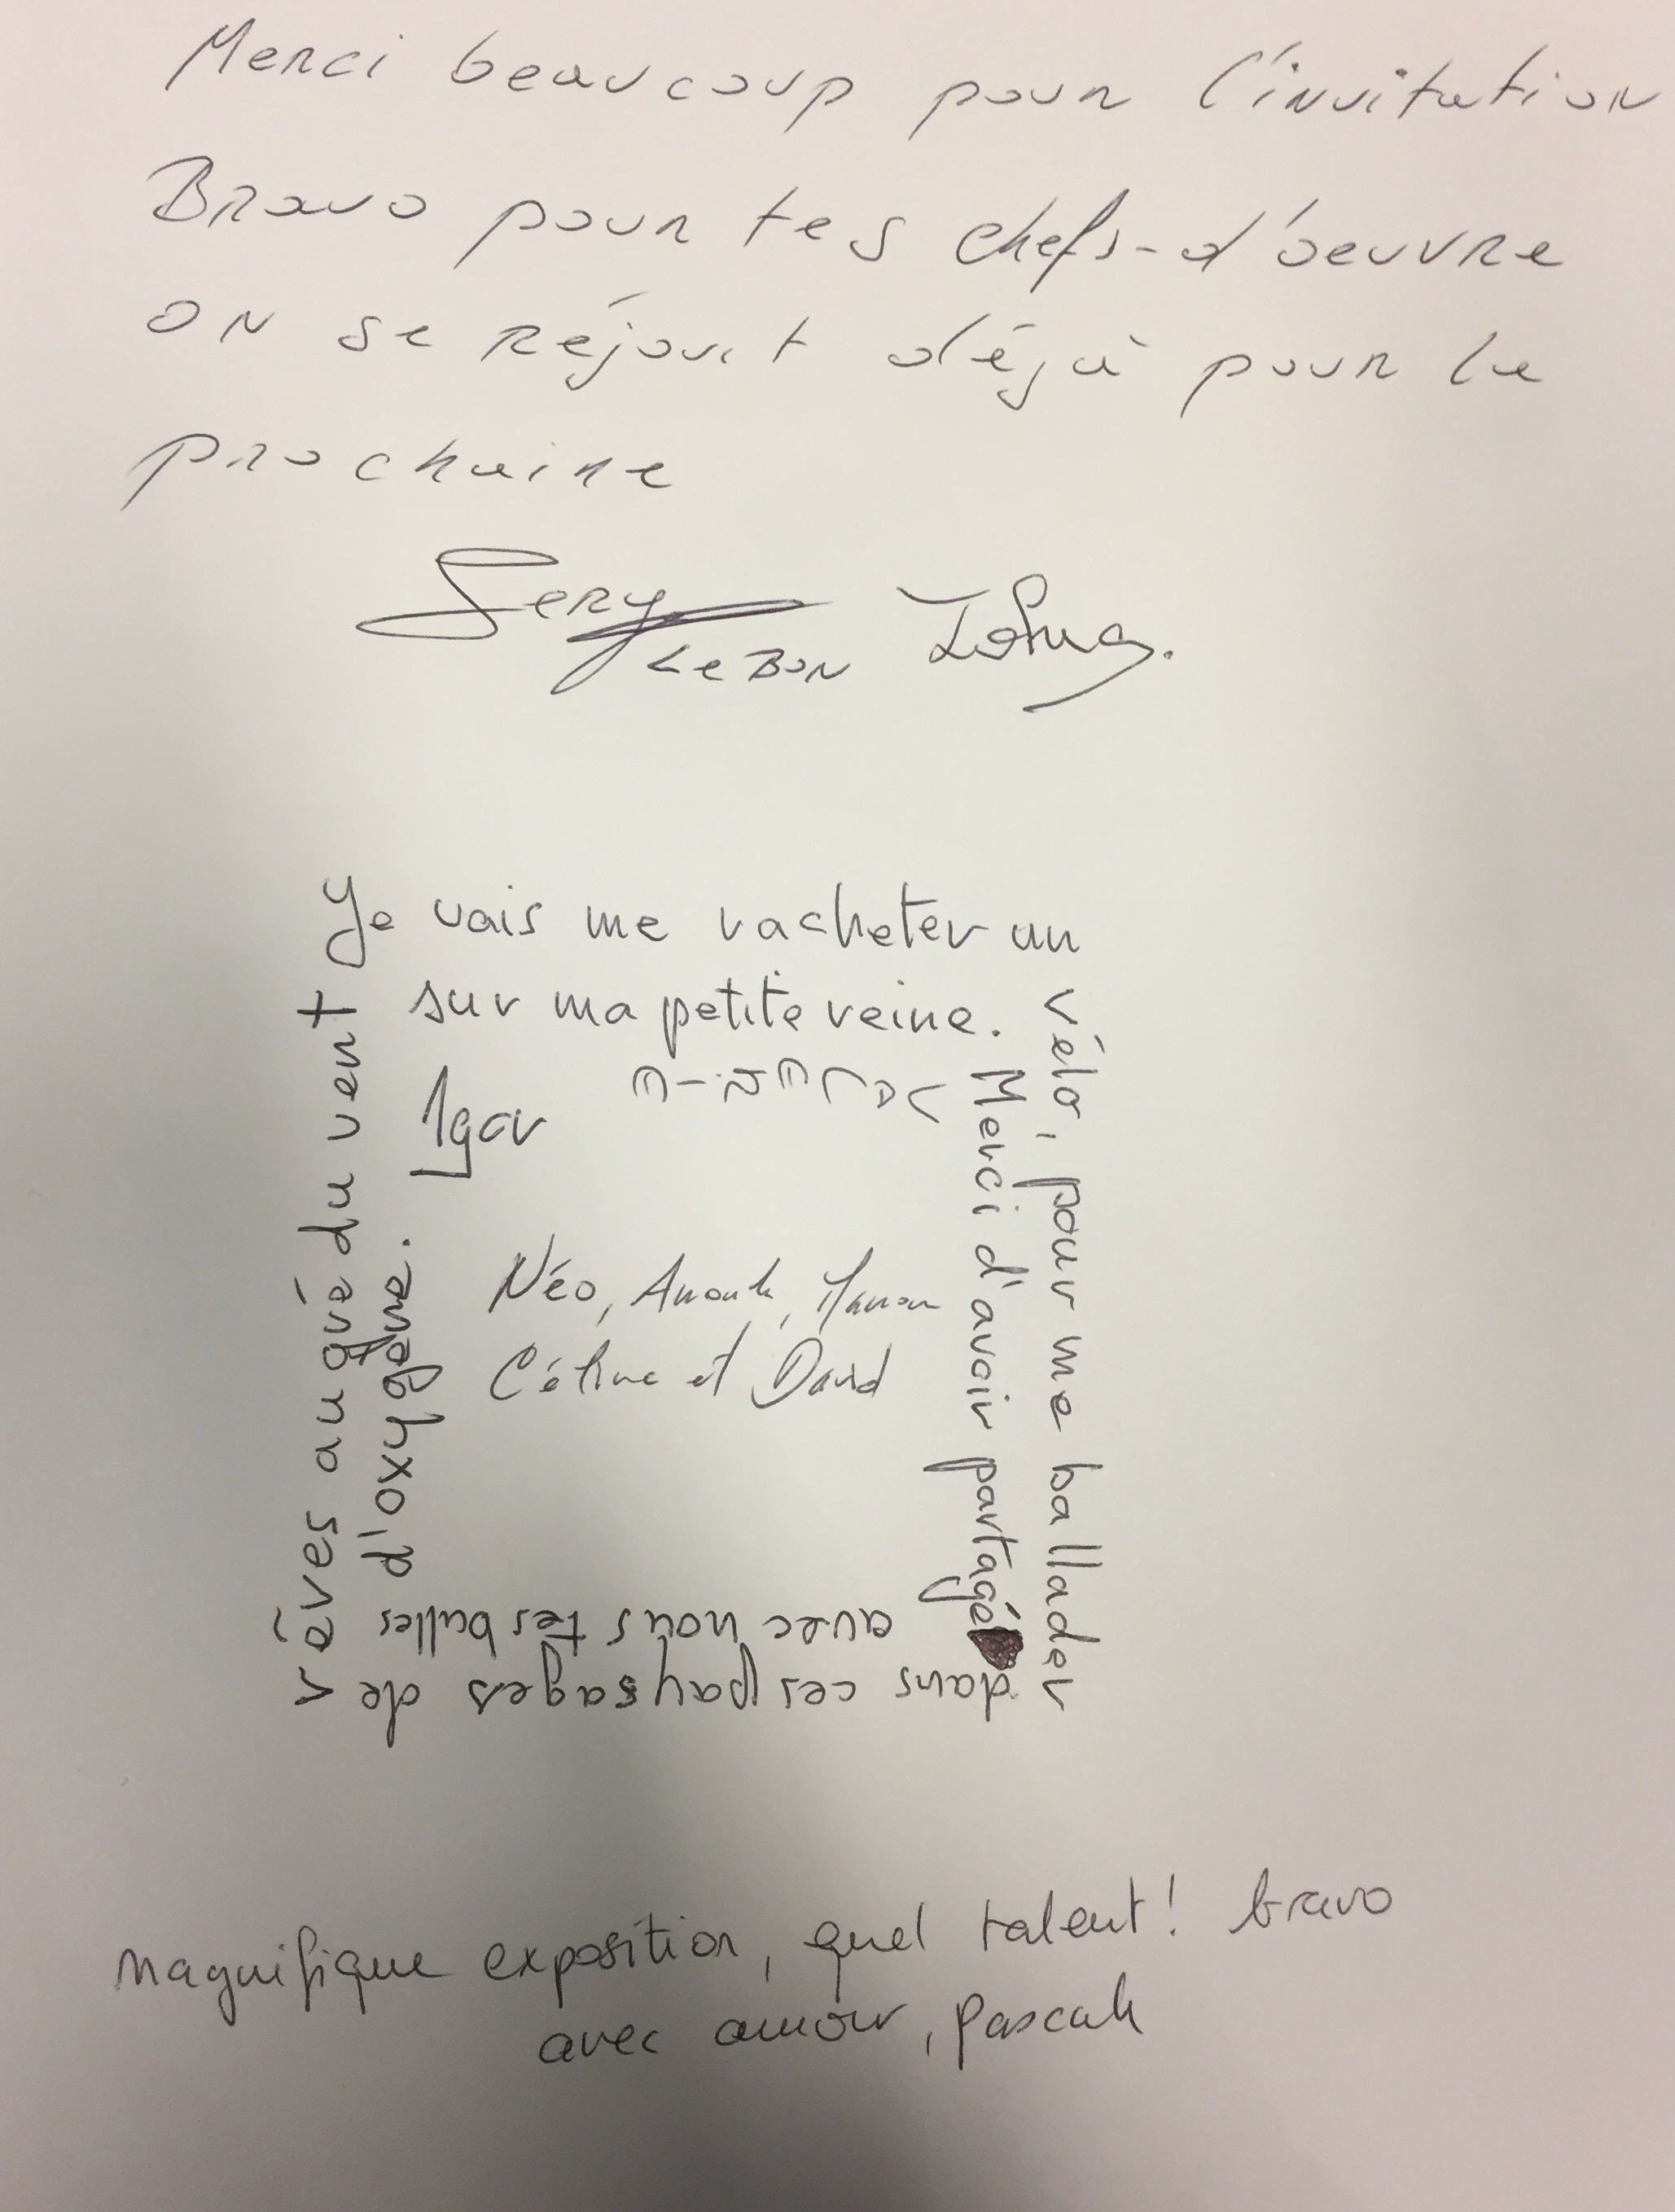 Merci beaucoup pour l'invitation
Bravo pour tes chefs-d'oeuvre
on se réjouit déjà pour la
prochaine
Le Bon
Je vais me racheter un
vélo, pour me ballader
dans ces paysages de
rêves au gré du vent
sur ma petite reine.
Merci d'avoir partagé
avec nous tes bulles
d'oxygène.
Igor
Néo, Anouk, Manon
Céline et David
Magnifique exposition, quel talent! bravo
avec amour, Pascale